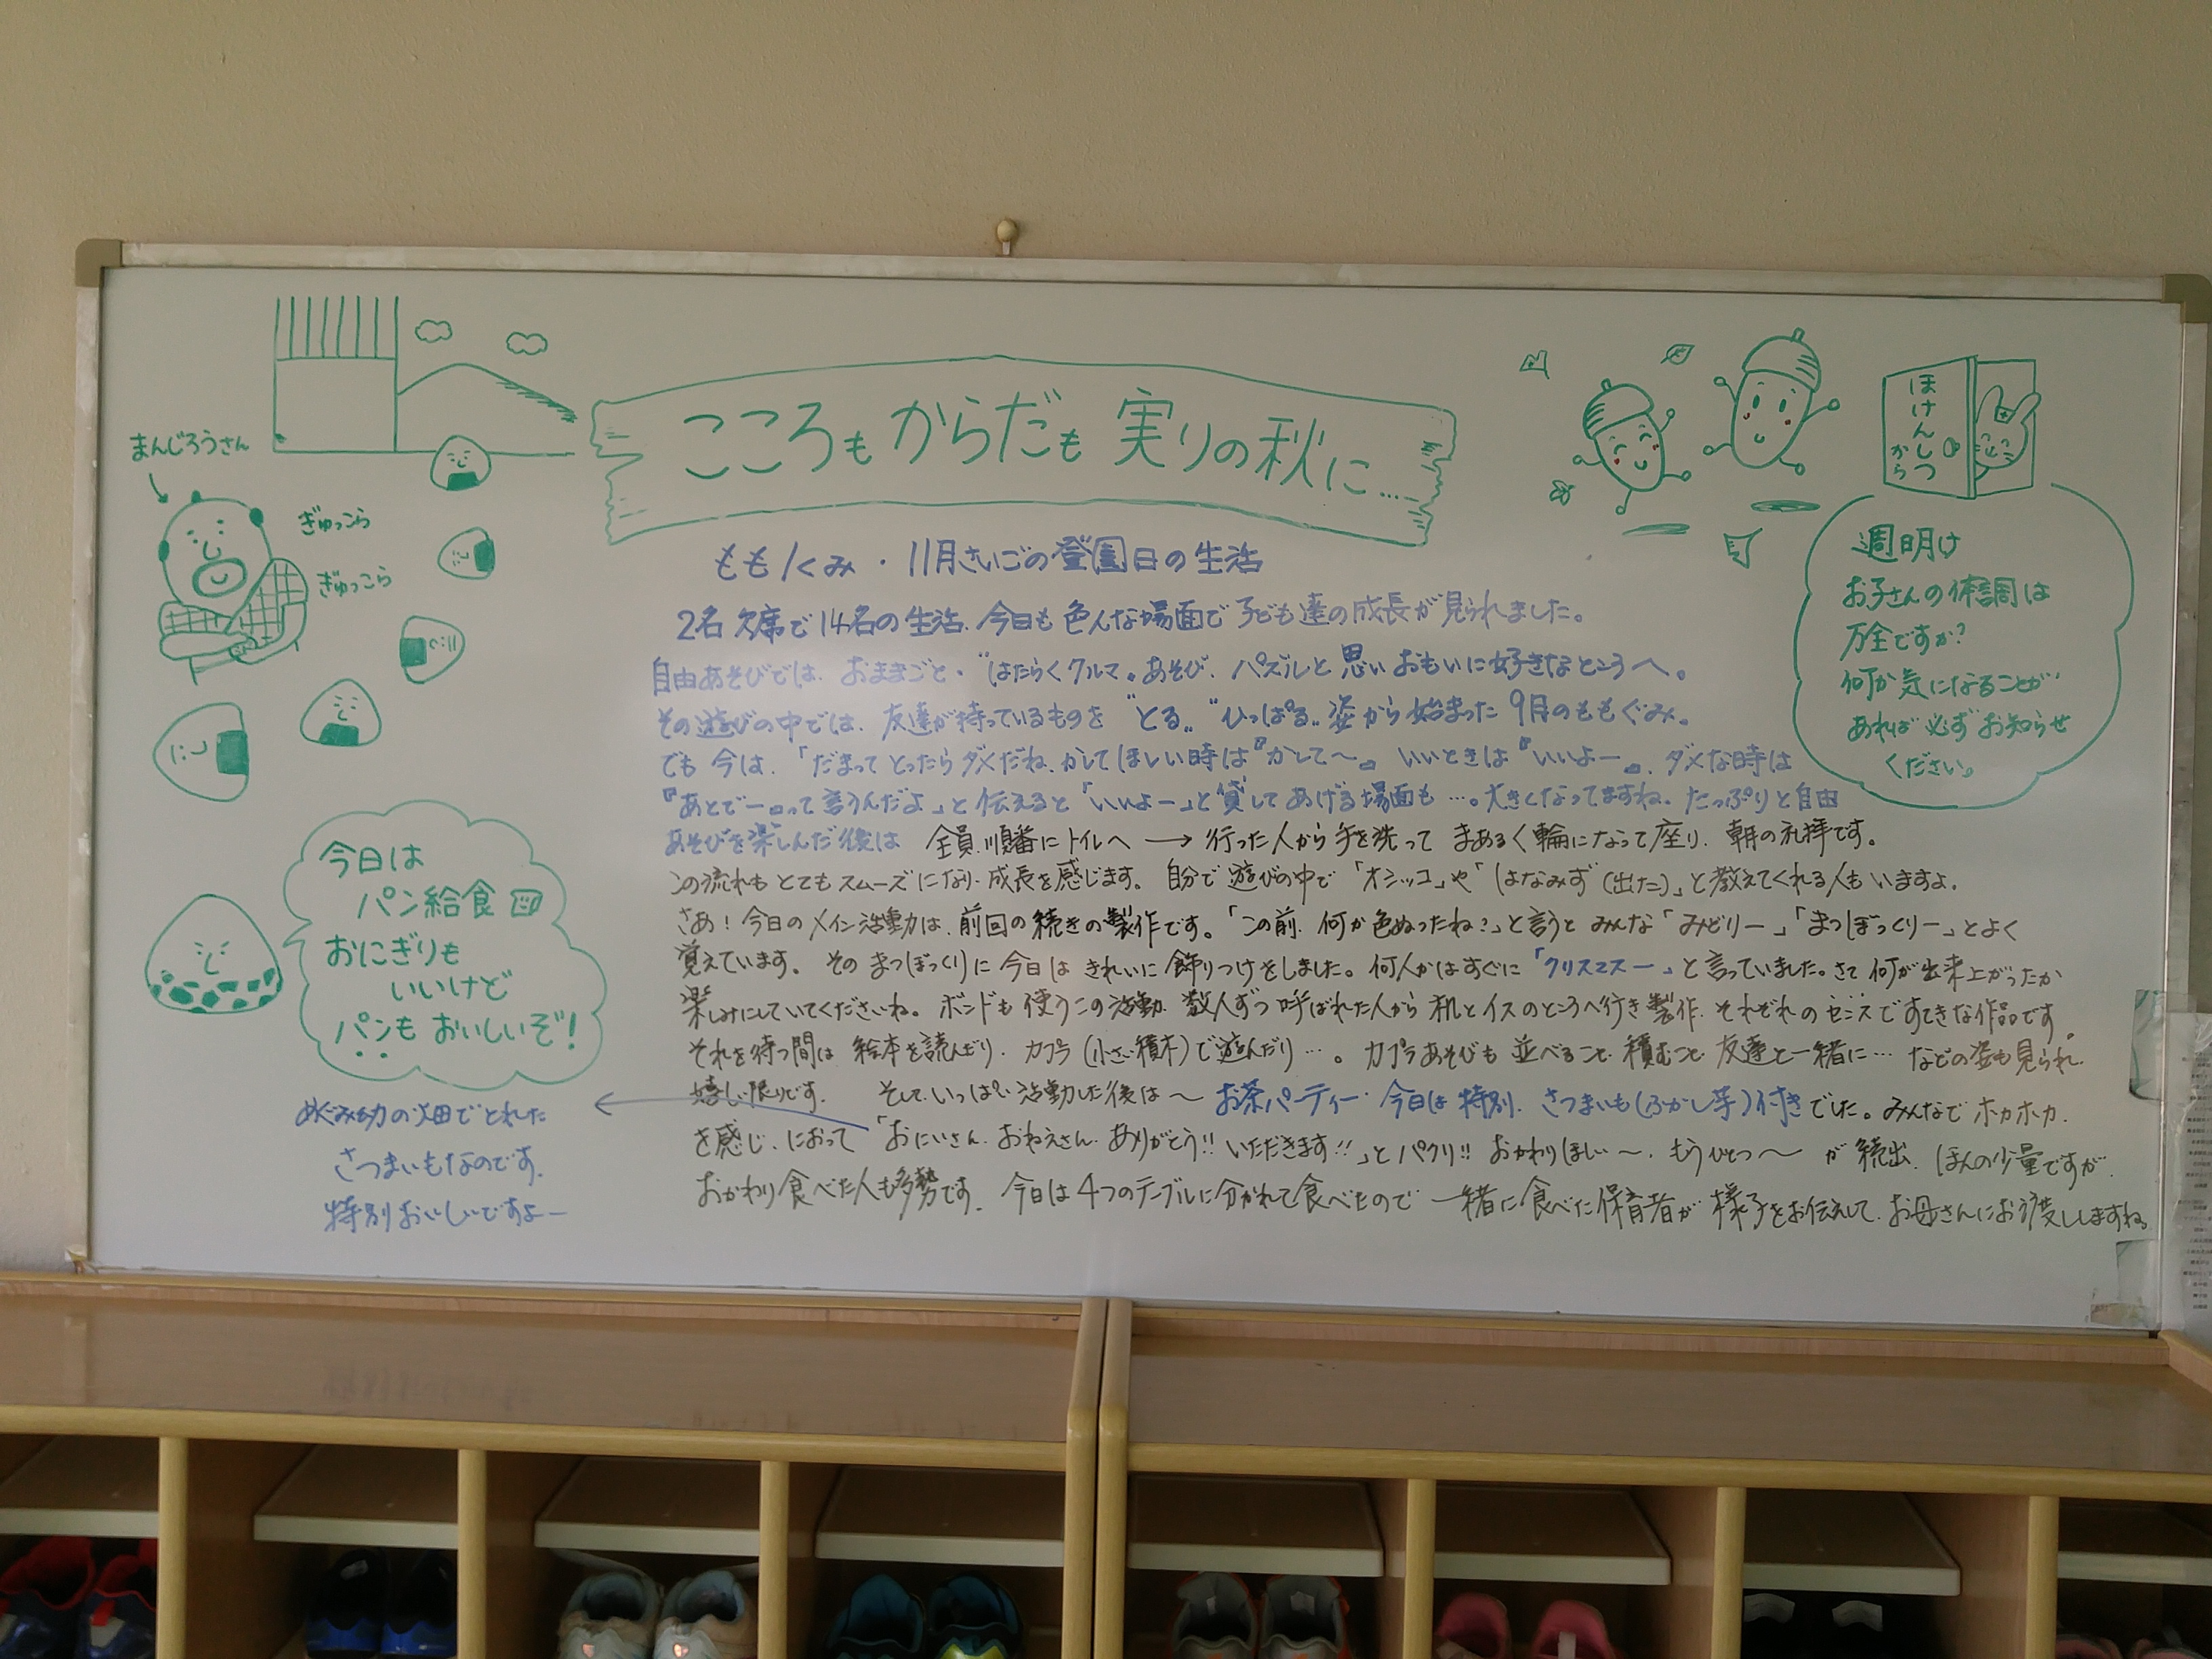 こころもからだも実りの秋に…
まんじろうさん
ぎゅっこら
ぎゅっこら
ほけんしつから
週明け
お子さんの体調は
万全ですか?
何か気になることが
あれば必ずお知らせ
ください。
ももぐみ・11月さいごの登園日の生活
2名欠席で14名の生活、今日も色んな場面で子ども達の成長が見られました。
自由あそびでは、おままごと・"はたらくクルマ"あそび、パズルと思いおもいに好きなところへ。
その遊びの中では、友達が持っているものを"とる" "ひっぱる"姿から始まった9月のももぐみ。
でも今は、「だまってとったらダメだね、かしてほしい時は『かして〜』いいときは『いいよー』、ダメな時は
『あとでー』って言うんだよ」と伝えると「いいよー」と貸してあげる場面も…。大きくなってますね。たっぷりと自由
あそびを楽しんだ後は 全員順番にトイレへ → 行った人から手を洗って まあるく輪になって座り、朝の礼拝です。
この流れもとてもスムーズになり、成長を感じます。自分で遊びの中で「オシッコ」や「はなみず(出た)」と教えてくれる人もいますよ。
さあ!今日のメイン活動は、前回の続きの製作です。「この前、何か色ぬったね?」と言うとみんな「みどりー」「まつぼっくりー」とよく
覚えています。そのまつぼっくりに今日はきれいに飾りつけをしました。何人かはすぐに「クリスマスー」と言っていました。さて何が出来上がったか
楽しみにしていてくださいね。ボンドも使うこの活動、数人ずつ呼ばれた人から机とイスのところへ行き製作、それぞれのセンスですてきな作品です。
それを待つ間は絵本を読んだり、カプラ(小さい積木)で遊んだり…。カプラあそびも並べること、積むこと、友達と一緒に…などの姿も見られ、
嬉しい限りです。 そして、いっぱい活動した後は〜お茶パーティー・今日は特別、さつまいも(ふかし芋)付きでした。みんなでホカホカ、
を感じ、におって「おにいさん、おねえさん、ありがとう!!いただきます!!」とパクリ!!おかわりほしい〜、もうひとつ〜が続出、ほんの少量ですが、
おかわり食べた人も多勢です。今日は4つのテーブルに分かれて食べたので一緒に食べた保育者が様子をお伝えして、お母さんにお渡ししますね。
今日は
パン給食
おにぎりも
いいけど
パンもおいしいぞ!
めぐみ幼の畑でとれた
さつまいもなのです。
特別おいしいですよー